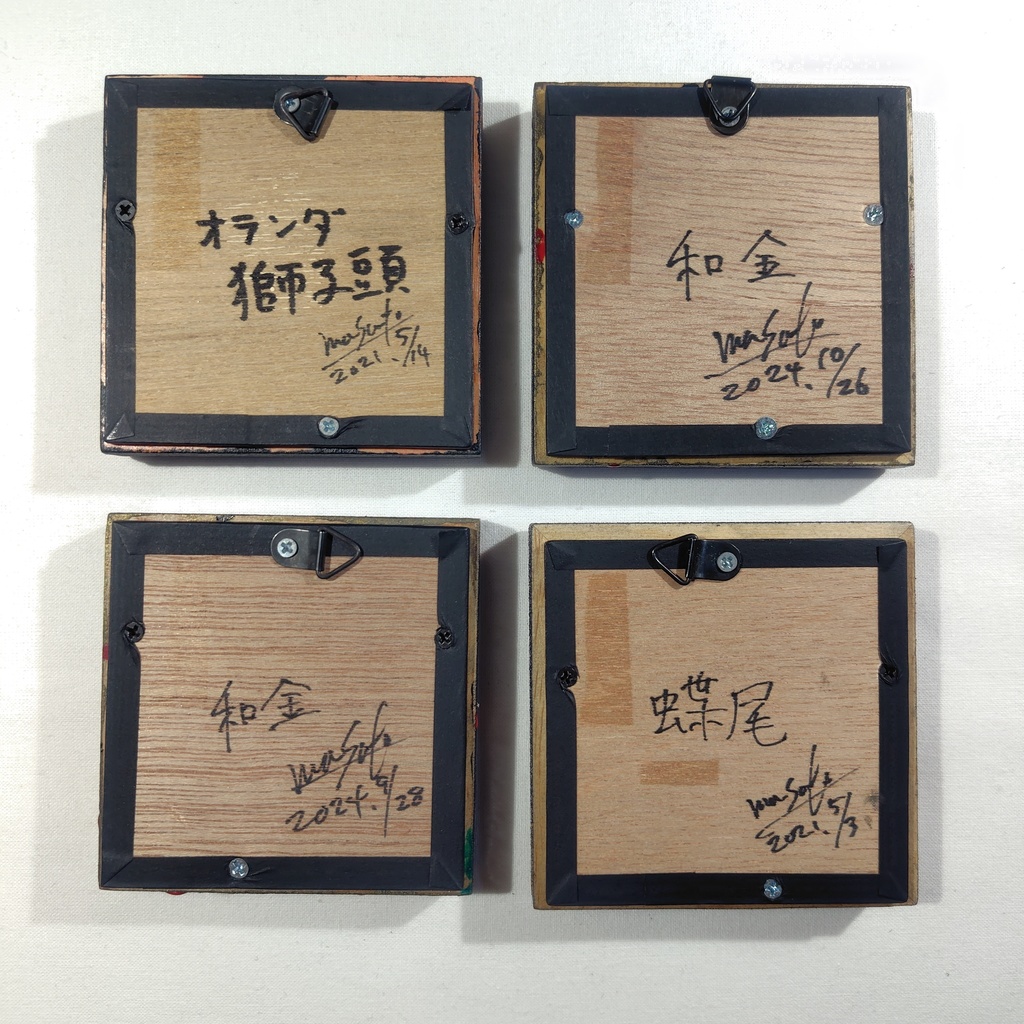 オランダ
獅子頭
masato
2021. 5/14
和金
masato
2024. 10/26
和金
masato
2024. 9/28
蝶尾
masato
2021. 5/3